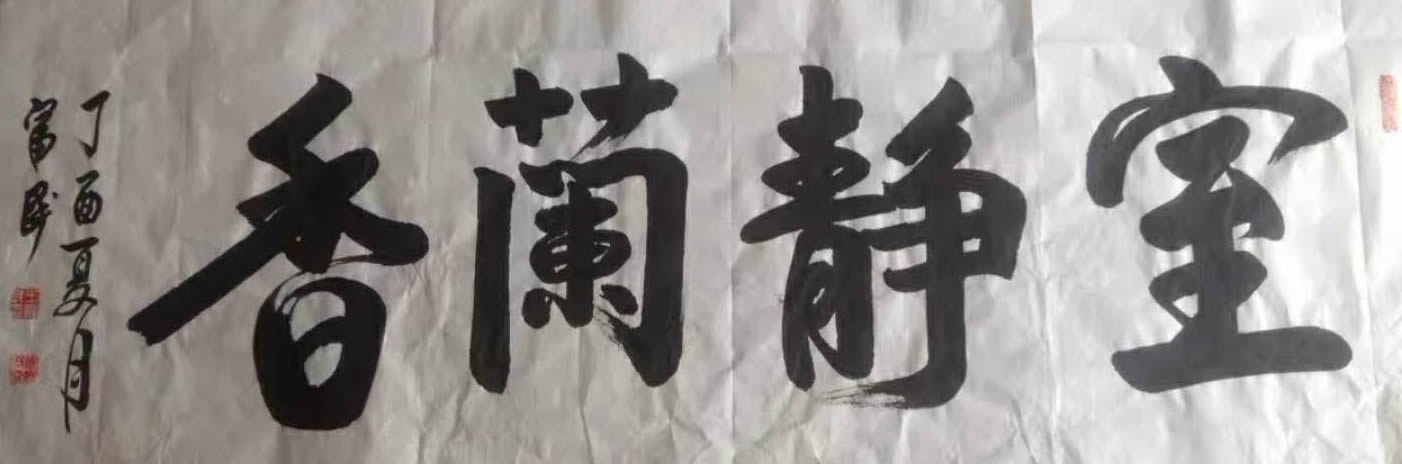 室靜蘭香
丁酉夏月
富民